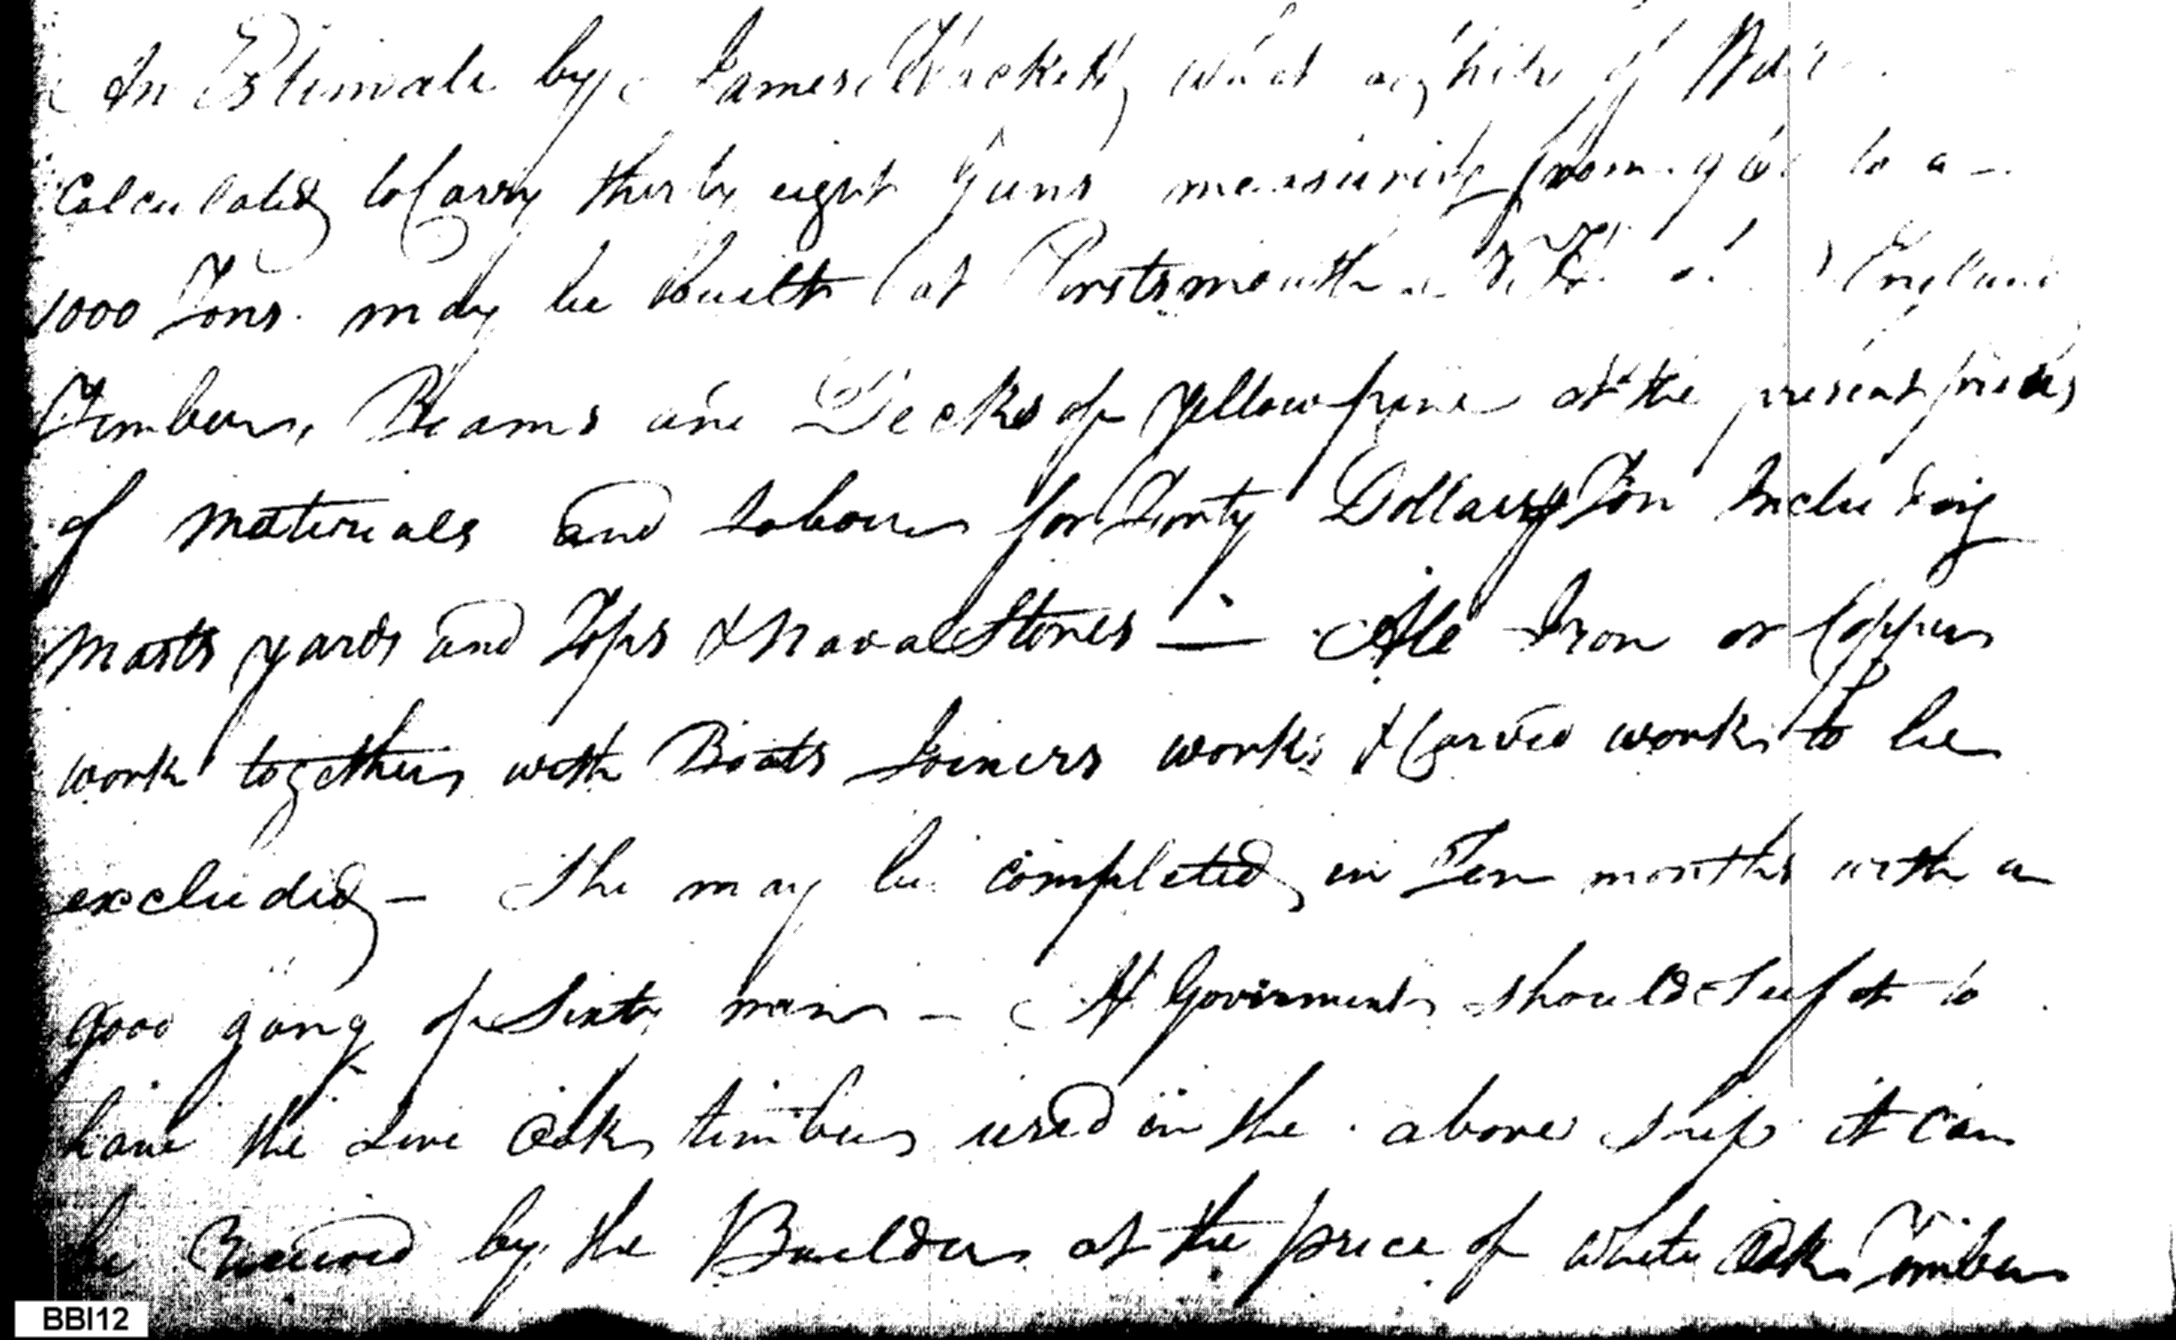 An Estimate by James Hackett, what a ship of War
Calculated to Carry thirty eight Guns measuring from 900 to a
1000 Tons may be built at Portsmouth England
Timber, Beams and Decks of yellow pine at the present prices
of Materials and Labour for Forty Dollars Ton Including
Masts yards and Tops & Naval Stores — All Iron or Copper
work together with Boats Joiners work & Carved work to be
excluded — She may be completed in Ten months with a
good gang of Sixty men — If Goverment should see fit to
have the Live Oak timber used in the above ship it can
be Received by the Builder at the price of White Oak Timber
BBI12